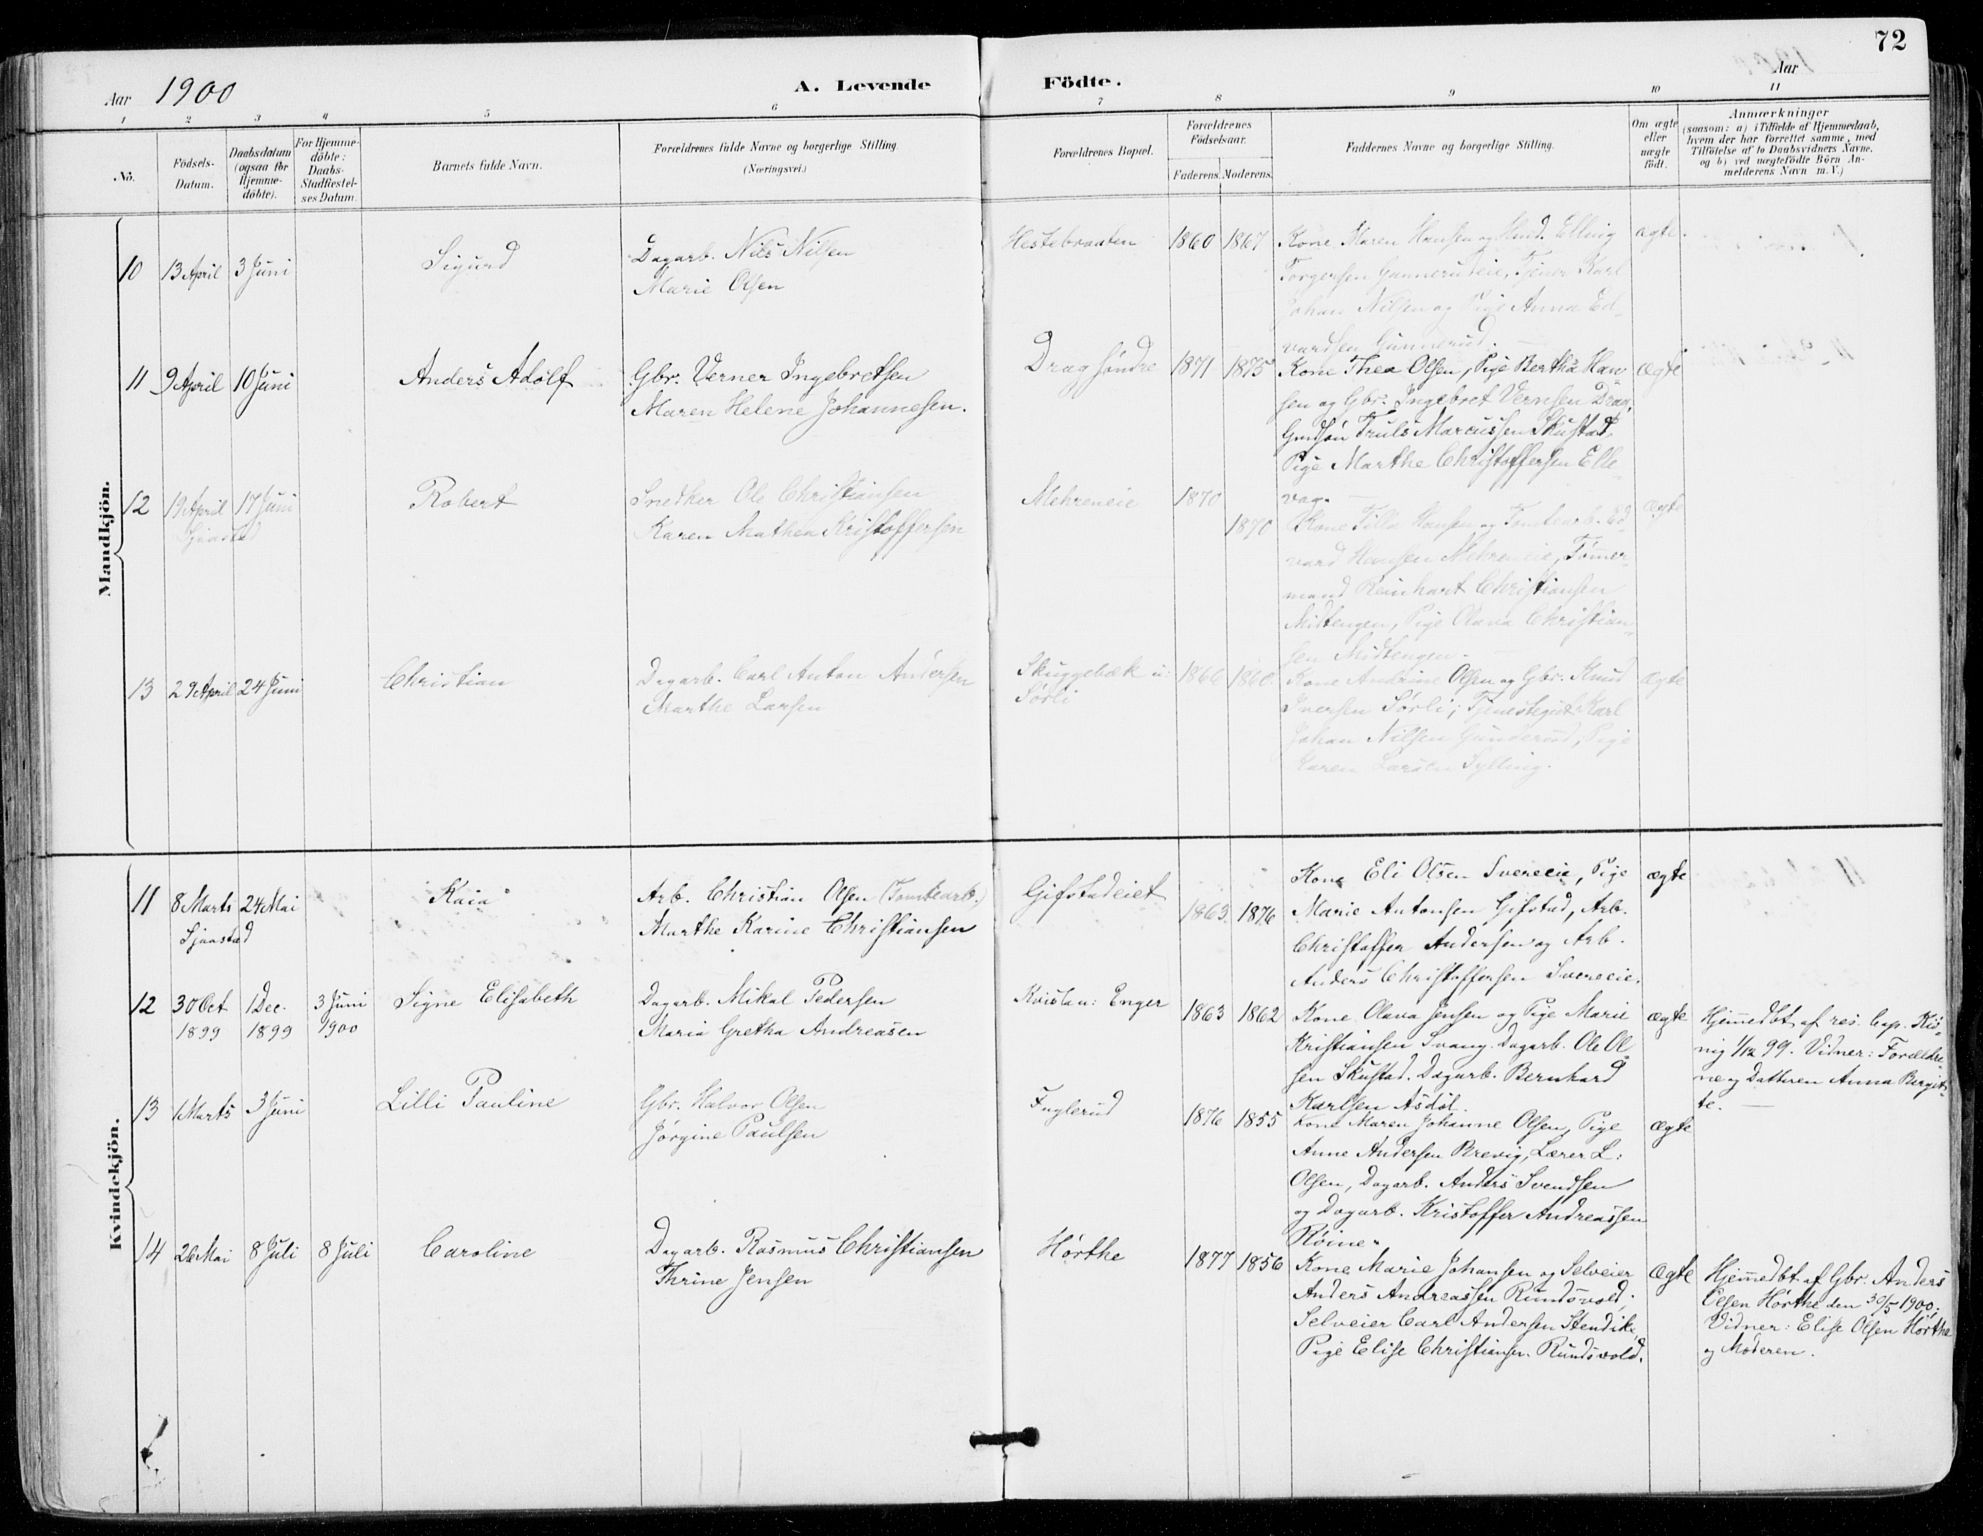 72
Aar 1900
A. Levende Födte.
Aar
1 2 3 4 5 6 7 8 9 10 11
No.
Födsels-Datum.
Daabsdatum (ogsaa for Hjemme-döbte).
For Hjemme-döbte: Daabs-Stadfæstel-ses Datum.
Barnets fulde Navn.
Forældrenes fulde Navne og borgerlige Stilling.
(Næringsvei.)
Forældrenes Bopæl.
Forældrenes Födselsaar.
Faderens. Moderens.
Faddernes Navne og borgerlige Stilling.
Om ægte eller uægte födt.
Anmærkninger
(saasom: a) i Tilfælde af Hjemmedaab,
hvem der har forrettet samme, med
Tilföielse af to Daabsvidners Navne,
og b) ved uægtefödte Börn An-
melderens Navn m. V.)
Mandkjön.
10 13 April 3 Juni Sigurd
Dagarb. Nils Nilsen
Marie Olsen
Hestebraaten 1860 1867
Kone Maren Hansen og Elling
Torgersen Gunnerudeie, Tjener Karl
Johan Nilsen og Pige Anna Ed-
vardsen Gunnerud.
ægte.
11 9 April 10 Juni Anders Adolf
Gbr. Verner Ingebretsen
Maren Helene Johannesen.
Drag söndre 1871 1875
Kone Thea Olsen, Pige Bertha Han
sen og Gbr. Ingebret Vernsen Drag,
Gmdsön Truls Marcussen Skustad,
Pige Marthe Christoffersen Elle
vag.
ægte
12 19 April 17 Juni Robert
Sjaastad
Snedker Ole Christiansen
Karen Mathea Kristoffersen
Mehreneie 1870
1870
Kone Tilla Hansen og Tomtearb. Ed-
vard Hansen Mehreneie, Tömmer-
mand Reinhart Christiansen
Midtengen, Pige Olava Christian-
sen Midtengen.
ægte
13 29 April 24 Juni Christian
Dagarb. Carl Anton Andersen
Marthe Larsen
Skuggebæk u: 1866 1860
Sörli
Kone Andrine Olsen og Gbr. Knud
Iversen Sörli; Tjenestegut Karl
Johan Nilsen Gunderud, Pige
Karen Larsen Sylling.
ægte
Kvindekjön.
11 8 Marts 24 Mai Kaia
Sjaastad
Arb. Christian Olsen (Tomtearb.)
Marthe Karine Christiansen
Gifstadeiet
1863 1876
Kone Eli Olsen Svereeie, Pige
Marie Antonsen Gifstad, Arb.
Christoffer Andersen og Arb.
Anders Christoffersen Svereeie.
ægte
12 30 Oct 1 Dec. 3 Juni Signe Elisabeth
1899 1899 1900
Dagarb. Mikal Pedersen
Maria Gretha Andreasen
Kvistan: Enger 1863 1862
Kone Olava Jensen og Pige Marie
Kristiansen Svang. Dagarb. Ole Ol-
sen Skustad. Dagarb. Bernhard
Karlsen Asdöl.
ægte
Hjemmedbt af res. Cap. Kö-
nig 1/12 99. Vidner: Forældre-
ne og Datteren Anna Birgit-
te.
13 1 Marts 3 Juni Lilli Pauline
Gbr. Halvor Olsen
Jörgine Paulsen
Fuglerud 1876 1855
Kone Maren Johanne Olsen, Pige
Anne Andersen Brevig, Lærer L.
Olsen, Dagarb. Anders Svendsen
og Dagarb. Kristoffer Andreassen
Röine.
ægte
14 26 Mai 8 Juli 8 Juli Caroline
Dagarb. Rasmus Christiansen
Thrine Jensen
Hörthe 1877 1856
Kone Marie Johansen og Selveier
Anders Andreassen Rundsvold.
Selveier Carl Andersen Stendik,
Pige Elise Christiansen Rundsvold.
ægte
Hjemmedbt af Gbr. Anders
Olsen Hörthe den 30/5 1900.
Vidner: Elise Olsen Hörthe
og Moderen.